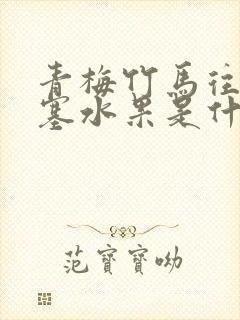 青梅竹馬往
塞水果是什
范寶寶呦